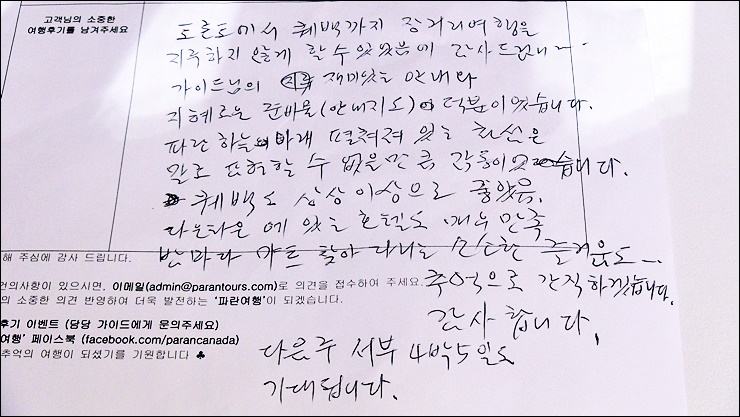 고객님의 소중한
여행후기를 남겨주세요
토론토에서 퀘백까지 장거리여행을
지루하지 않게 할 수 있었음에 감사드립니다~
가이드님의 재미있는 안내와
지혜로운 준비물(안내지도) 덕분이었습니다.
파란 하늘 아래 펼쳐져 있는 천섬은
말로 표현할 수 없을 만큼 감동이었습니다.
퀘백도 상상이상으로 좋았음.
다운타운에 있는 호텔도 매우 만족
밤마다 마트 찾아 다니는 소소한 즐거움도...
추억으로 간직하겠습니다.
감사합니다.
다음주 서부 4박5일도
기대됩니다.
해 주심에 감사 드립니다.
건의사항이 있으시면, 이메일(admin@parantours.com)로 의견을 접수하여 주세요.
의 소중한 의견 반영하여 더욱 발전하는 '파란여행'이 되겠습니다.
후기 이벤트 (담당 가이드에게 문의주세요)
여행' 페이스북 (facebook.com/parancanada)
추억의 여행이 되셨기를 기원합니다 ♣